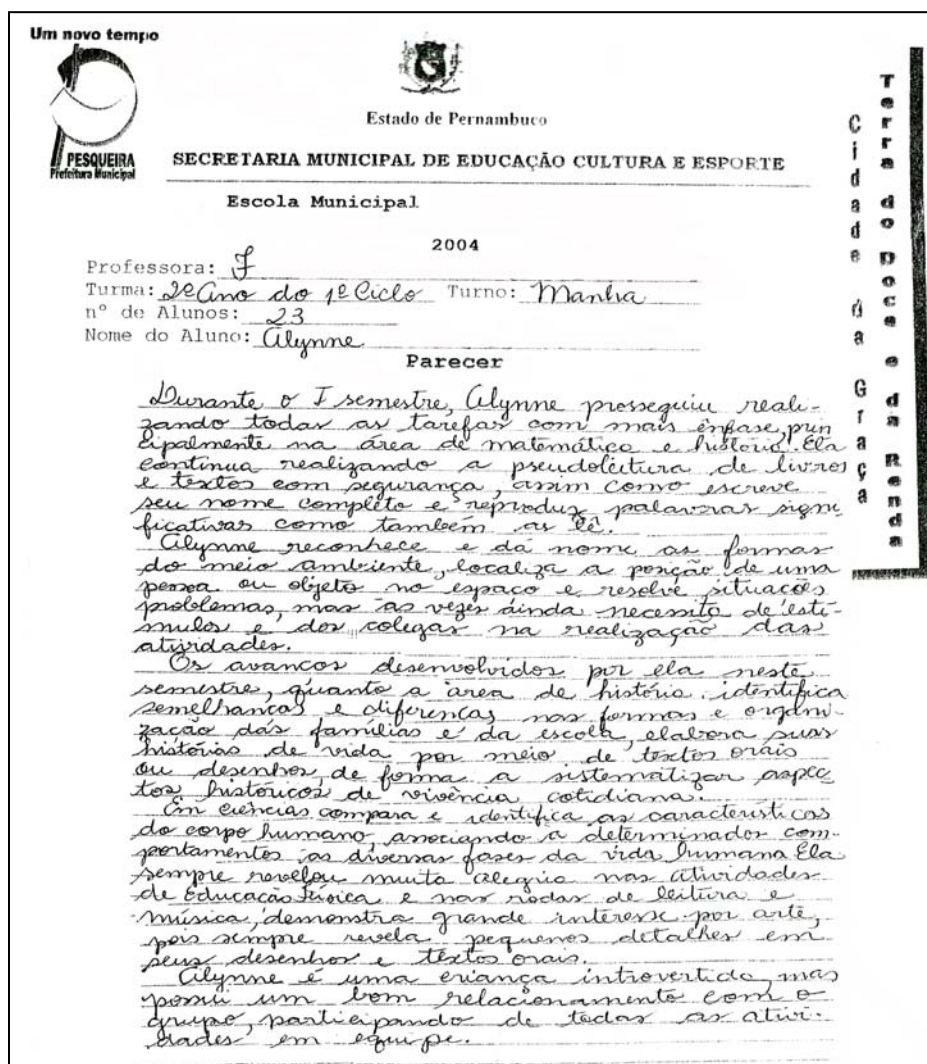 Um novo tempo
PESQUEIRA
Prefeitura Municipal
Estado de Pernambuco
SECRETARIA MUNICIPAL DE EDUCAÇÃO CULTURA E ESPORTE
Escola Municipal
2004
Professora: J
Turma: 2º Ano do 1º Ciclo Turno: Manhã
nº de Alunos: 23
Nome do Aluno: Alynne
Parecer
Durante o I semestre, Alynne prosseguiu reali-
zando todas as tarefas com mais ênfase, prin
cipalmente na área de matemática e história. Ela
continua realizando a pseudoleitura de livros
e textos com segurança, assim como escreve
seu nome completo e reproduz palavras signi
ficativas como também as lê.
Alynne reconhece e dá nome as formas
do meio ambiente, localiza a posição de uma
pessoa ou objeto no espaço e resolve situações
problemas, mas as vezes ainda necessita de estí-
mulos e dos colegas na realização das
atividades.
Os avanços desenvolvidos por ela neste
semestre, quanto a área de história, identifica
semelhanças e diferenças nas formas e organi-
zação das famílias e da escola, elabora suas
histórias de vida por meio de textos orais
ou desenhos, de forma a sistematizar aspec
tos históricos de vivência cotidiana.
Em ciências compara e identifica as características
do corpo humano, associando a determinados com-
portamentos as diversas fases da vida humana. Ela
sempre revelou muita alegria nas atividades
de Educação Física e nas rodas de leitura e
música, demonstra grande interesse por arte,
pois sempre revela pequenos detalhes em
seus desenhos e textos orais.
Alynne é uma criança introvertida, mas
possui um bom relacionamento com o
grupo, participando de todas as ativi-
dades em equipe.
Cidade da Graça
Terra do Doce e da Renda